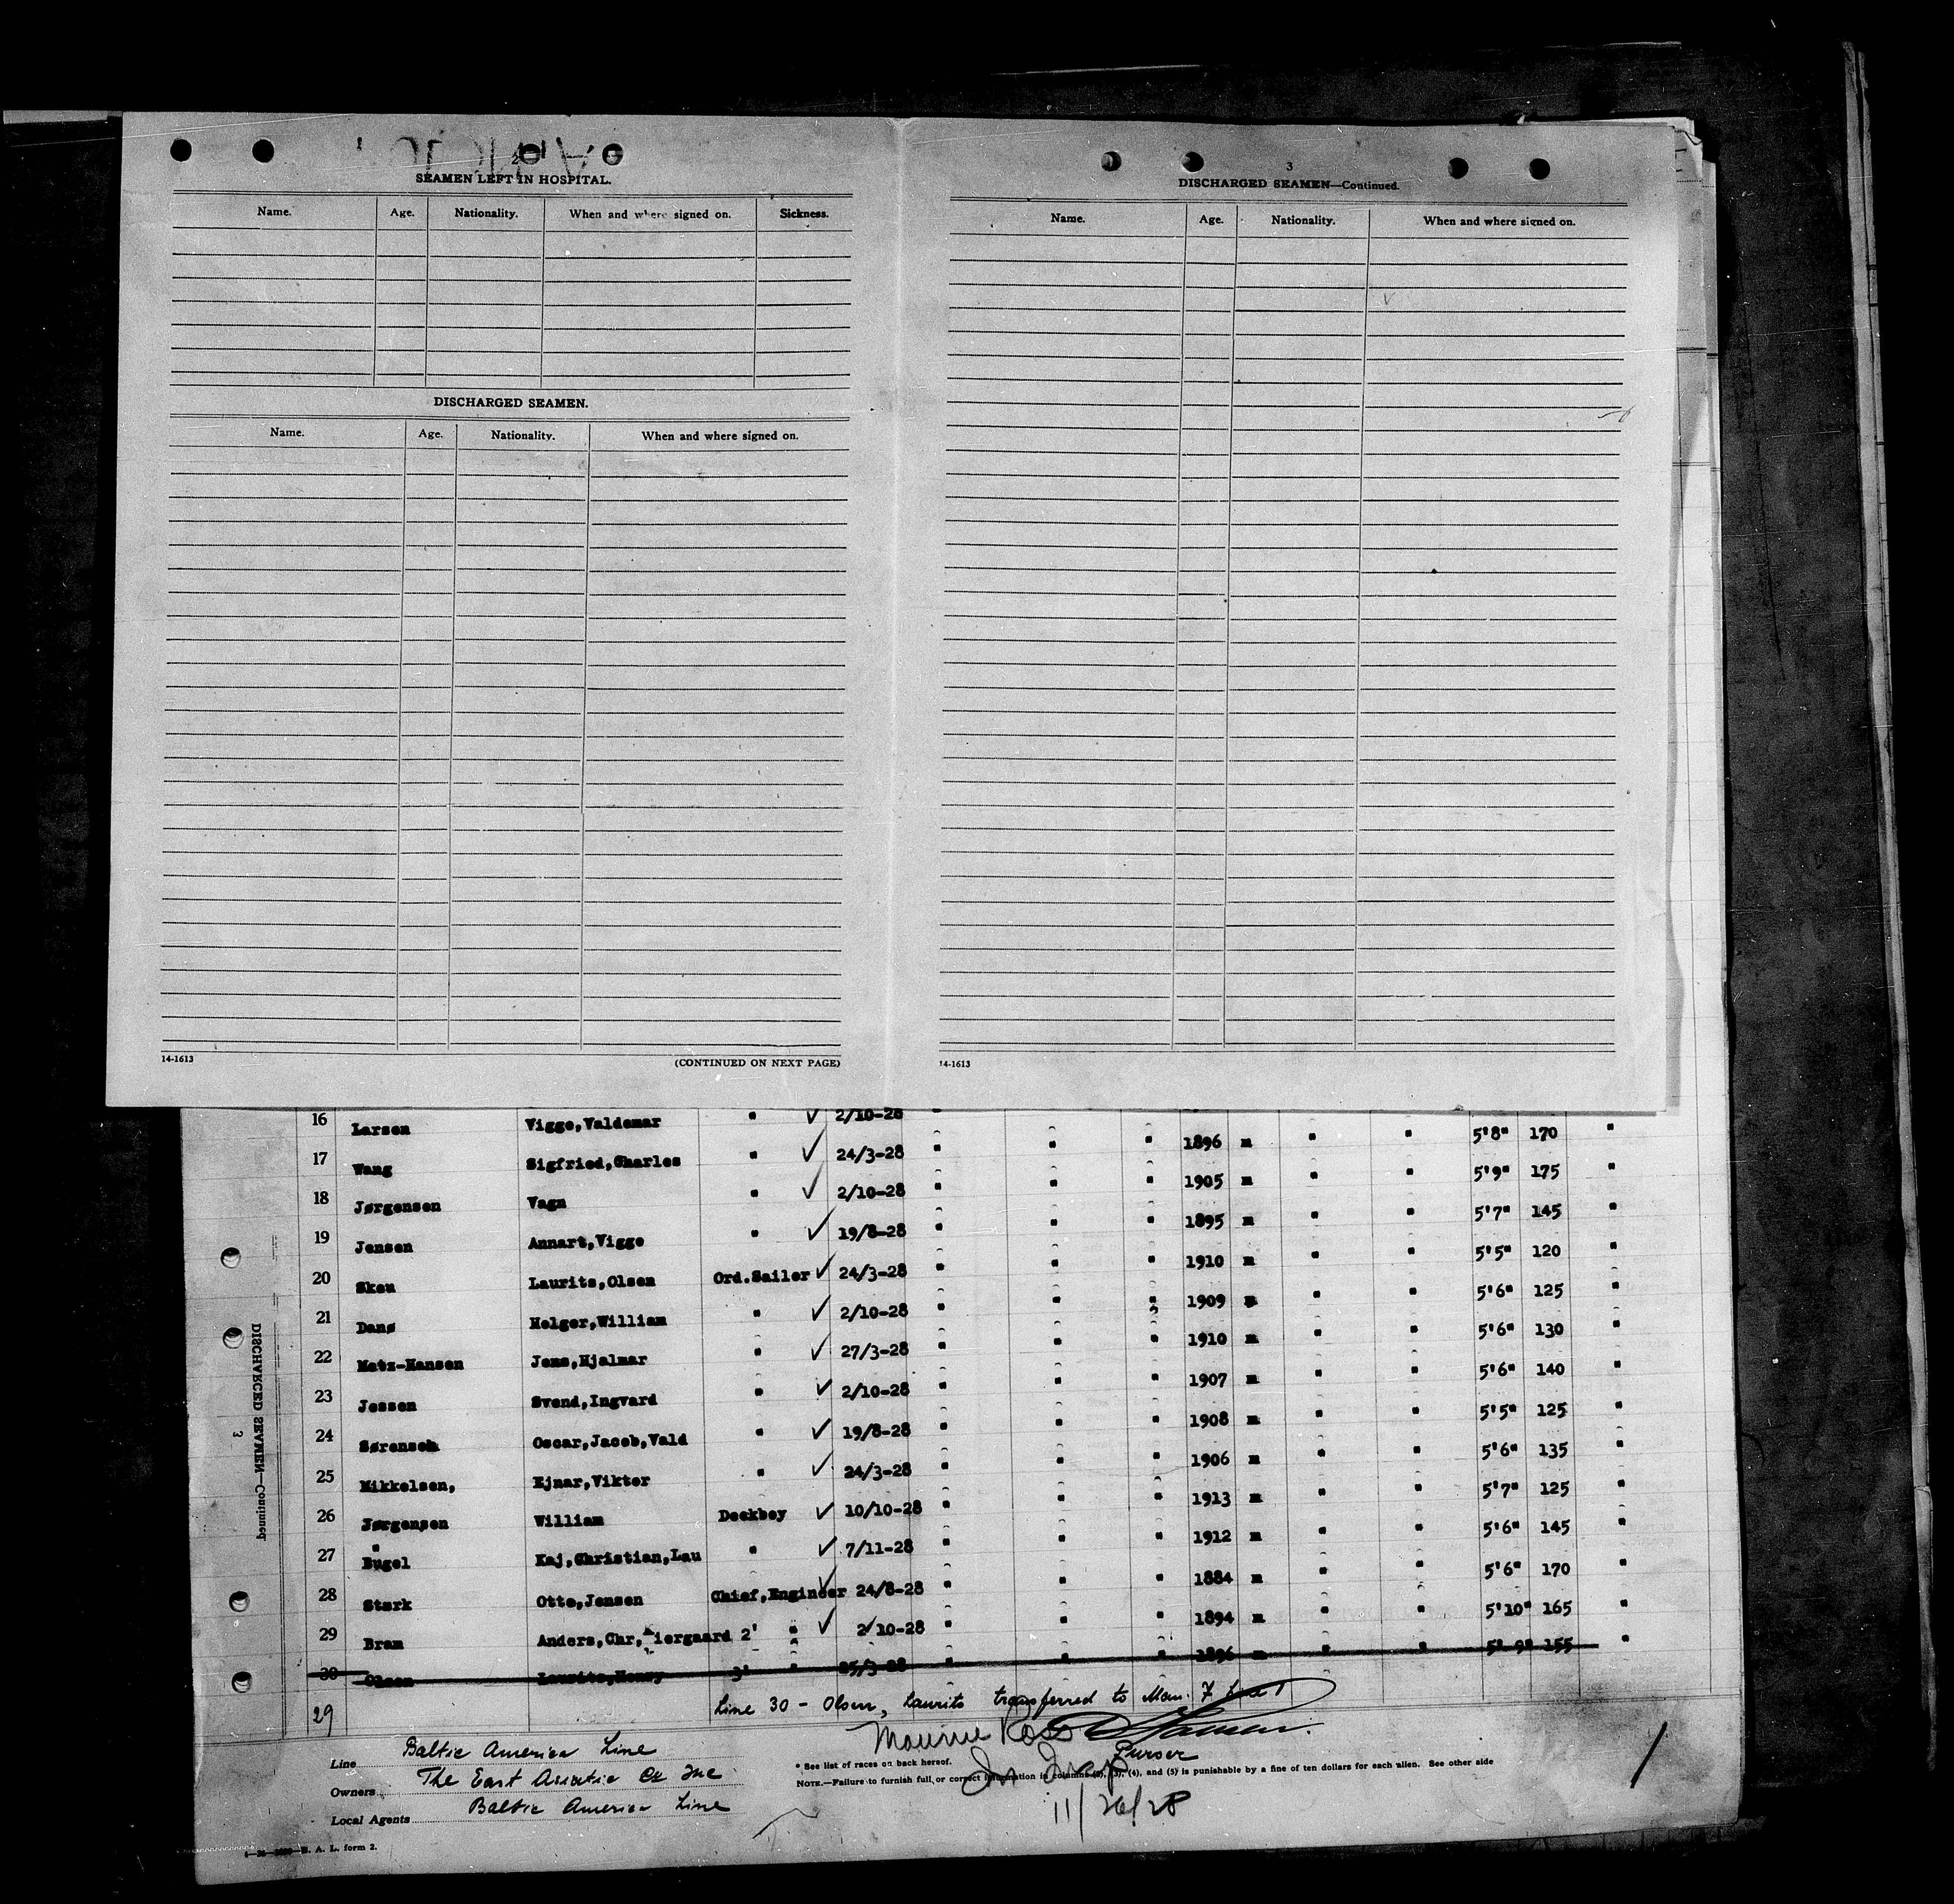 SEAMEN LEFT IN HOSPITAL.
Name. Age. Nationality. When and where signed on. Sickness.
DISCHARGED SEAMEN.
Name. Age. Nationality. When and where signed on.
14-1613 (CONTINUED ON NEXT PAGE)
3
DISCHARGED SEAMEN—Continued.
Name. Age. Nationality. When and where signed on.
14-1613
16 Larsen Viggo,Valdemar " ✓ 2/10-28 " " "
17 Wang Sigfried,Charles " ✓ 24/3-28 " " " 1896 m " " 5'8" 170 "
18 Jørgensen Vagn " ✓ 2/10-28 " " " 1905 m " " 5'9" 175 "
19 Jensen Annart,Viggo " ✓ 19/8-28 " " " 1895 m " " 5'7" 145 "
20 Skou Laurits,Olsen Ord.Sailor ✓ 24/3-28 " " " 1910 m " " 5'5" 120 "
21 Danø Holger,William " ✓ 2/10-28 " " " 1909 m " " 5'6" 125 "
22 Metz-Hansen Jens,Hjalmar " ✓ 27/3-28 " " " 1910 m " " 5'6" 130 "
23 Jessen Svend,Ingvard " ✓ 2/10-28 " " " 1907 m " " 5'6" 140 "
24 Sørensen Oscar,Jacob,Vald " ✓ 19/8-28 " " " 1908 m " " 5'5" 125 "
25 Mikkelsen, Ejnar,Viktor " ✓ 24/3-28 " " " 1906 m " " 5'6" 135 "
26 Jørgensen William Deckboy ✓ 10/10-28 " " " 1913 m " " 5'7" 125 "
27 Bugel Kaj,Christian,Lau " ✓ 7/11-28 " " " 1912 m " " 5'6" 145 "
28 Stark Otto,Jensen Chief,Engineer ✓ 24/8-28 " " " 1884 m " " 5'6" 170 "
29 Bram Anders,Chr, iergaard 2' " ✓ 2/10-28 " " " 1894 m " " 5'10" 165 "
30 Olsen Laurits,Henry 3' " 25/3-28 " " " 1896 m " " 5' 9" 155 "
29 Line 30 - Olsen, Laurits transferred to Man. 7 Line 1
Maurice
Purser
Line Baltic America Line
Owners The East Asiatic Co Inc
Local Agents Baltic America Line
* See list of races on back hereof.
NOTE.—Failure to furnish full or correct information in columns (2), (3), (4), and (5) is punishable by a fine of ten dollars for each alien. See other side
11/26/28
B. A. L. form 2.
DISCHARGED SEAMEN—Continued
3